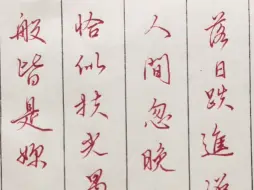 落日跌進
人間忽晚
恰似扶光
般皆是妳